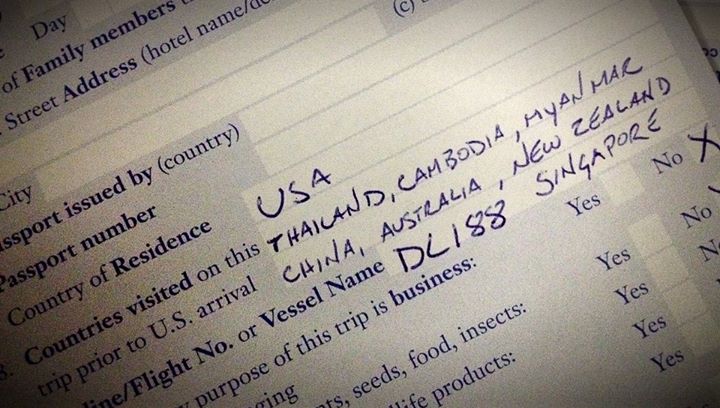 Day
of Family members
(c)
Street Address (hotel name/
City
ssport issued by (country)
assport number
Country of Residence USA
Countries visited on this THAILAND, CAMBODIA, MYANMAR
trip prior to U.S. arrival CHINA, AUSTRALIA, NEW ZEALAND
SINGAPORE
ine/Flight No. or Vessel Name DL188
purpose of this trip is business: Yes No X
ging
ts, seeds, food, insects: Yes No
life products: Yes
Yes
Yes